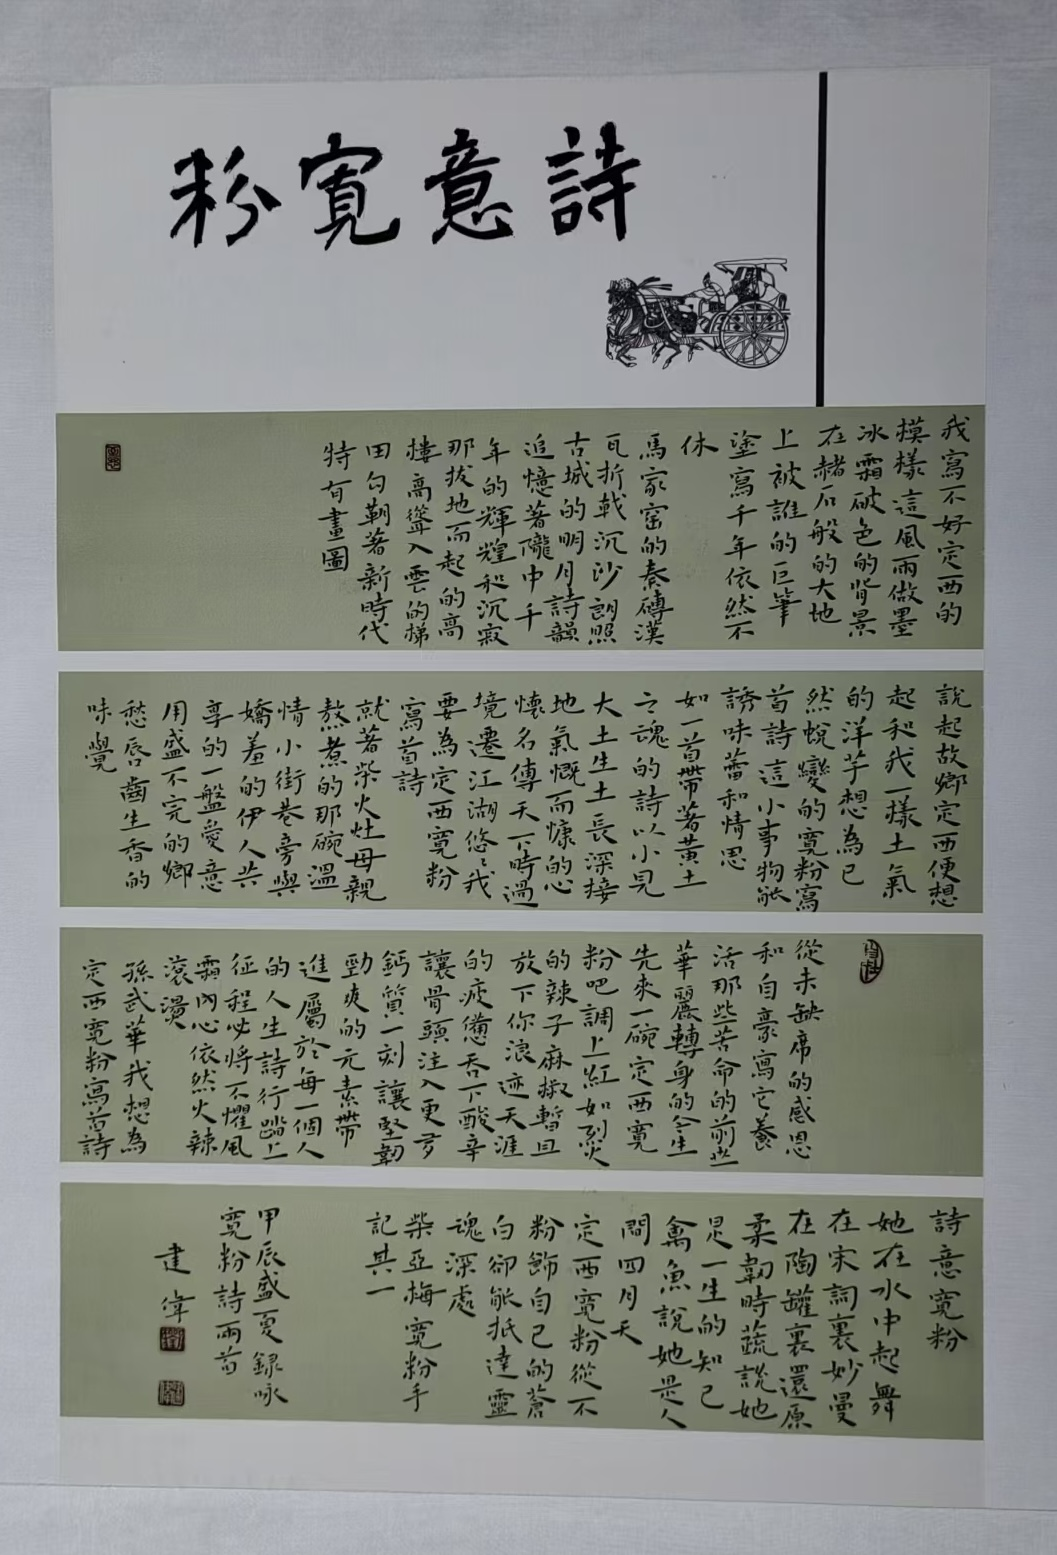 詩意寬粉
我寫不好定西的
模樣這風雨做墨
冰霜破色的背景
在赭石般的大地
上被誰的巨筆
塗寫千年依然不
休
馬家窑的秦磚漢
瓦折戟沉沙朗照
古城的明月詩韻
追憶著隴中千
年的輝煌和沉寂
那拔地而起的高
樓高聳入雲的梯
田勾勒著新時代
特有畫圖
說起故鄉定西便想
起和我一樣土氣
的洋芋想為已
然蛻變的寬粉寫
首詩這小事物能
誘味蕾和情思
如一首帶著黃土
之魂的詩以小見
大土生土長深接
地氣慨而慷的心
懷名傳天下時過
境遷江湖悠悠我
要為定西寬粉
寫首詩
就著柴火灶母親
熬煮的那碗溫
情小街巷旁與
嬌羞的伊人共
享的一盤愛意
用盛不完的鄉
愁唇齒生香的
味覺
從未缺席的感恩
和自豪寫它養
活那些苦命的前世
華麗轉身的今生
先來一碗定西寬
粉吧調上紅如烈火
的辣子麻椒暫且
放下你浪迹天涯
的疲憊吞下酸辛
讓骨頭注入更多
鈣質一刻讓堅韌
勁爽的元素帶
進屬於每一個人
的人生詩行踏上
征程必將不懼風
霜內心依然火辣
滾燙
孫武華我想為
定西寬粉寫首詩
詩意寬粉
她在水中起舞
在宋詞裏妙曼
在陶罐裏還原
柔韌時蔬說她
是一生的知己
禽魚說她是人
間四月天
定西寬粉從不
粉飾自己的蒼
白卻能抵達靈
魂深處
柴亞梅寬粉手
記其一
甲辰盛夏錄咏
寬粉詩兩首
建偉